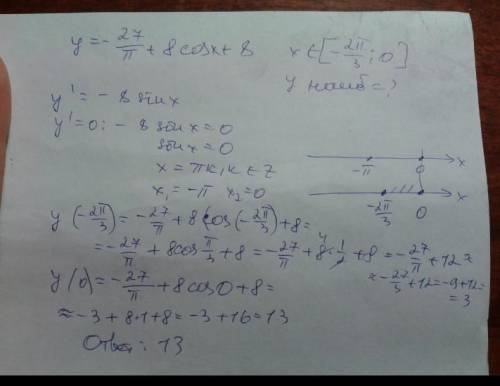 y = -27/π + 8cosx + 8     x ∈ [-2π/3; 0]
y наиб = ?
y' = -8 sin x
y' = 0: -8 sin x = 0
sin x = 0
x = πk, k ∈ Z
x₁ = -π  x₂ = 0
-π  0  x
-2π/3  0  x
y(-2π/3) = -27/π + 8(cos(-2π/3) + 8 =
= -27/π + 8cos π/3 + 8 = -27/π + 8 · 1/2 + 8 = -27/π + 12 ≈
4
≈ -27/3 + 12 = -9 + 12 =
= 3
y(0) = -27/π + 8cos0 + 8 =
≈ -3 + 8·1 + 8 = -3 + 16 = 13
Ответ: 13